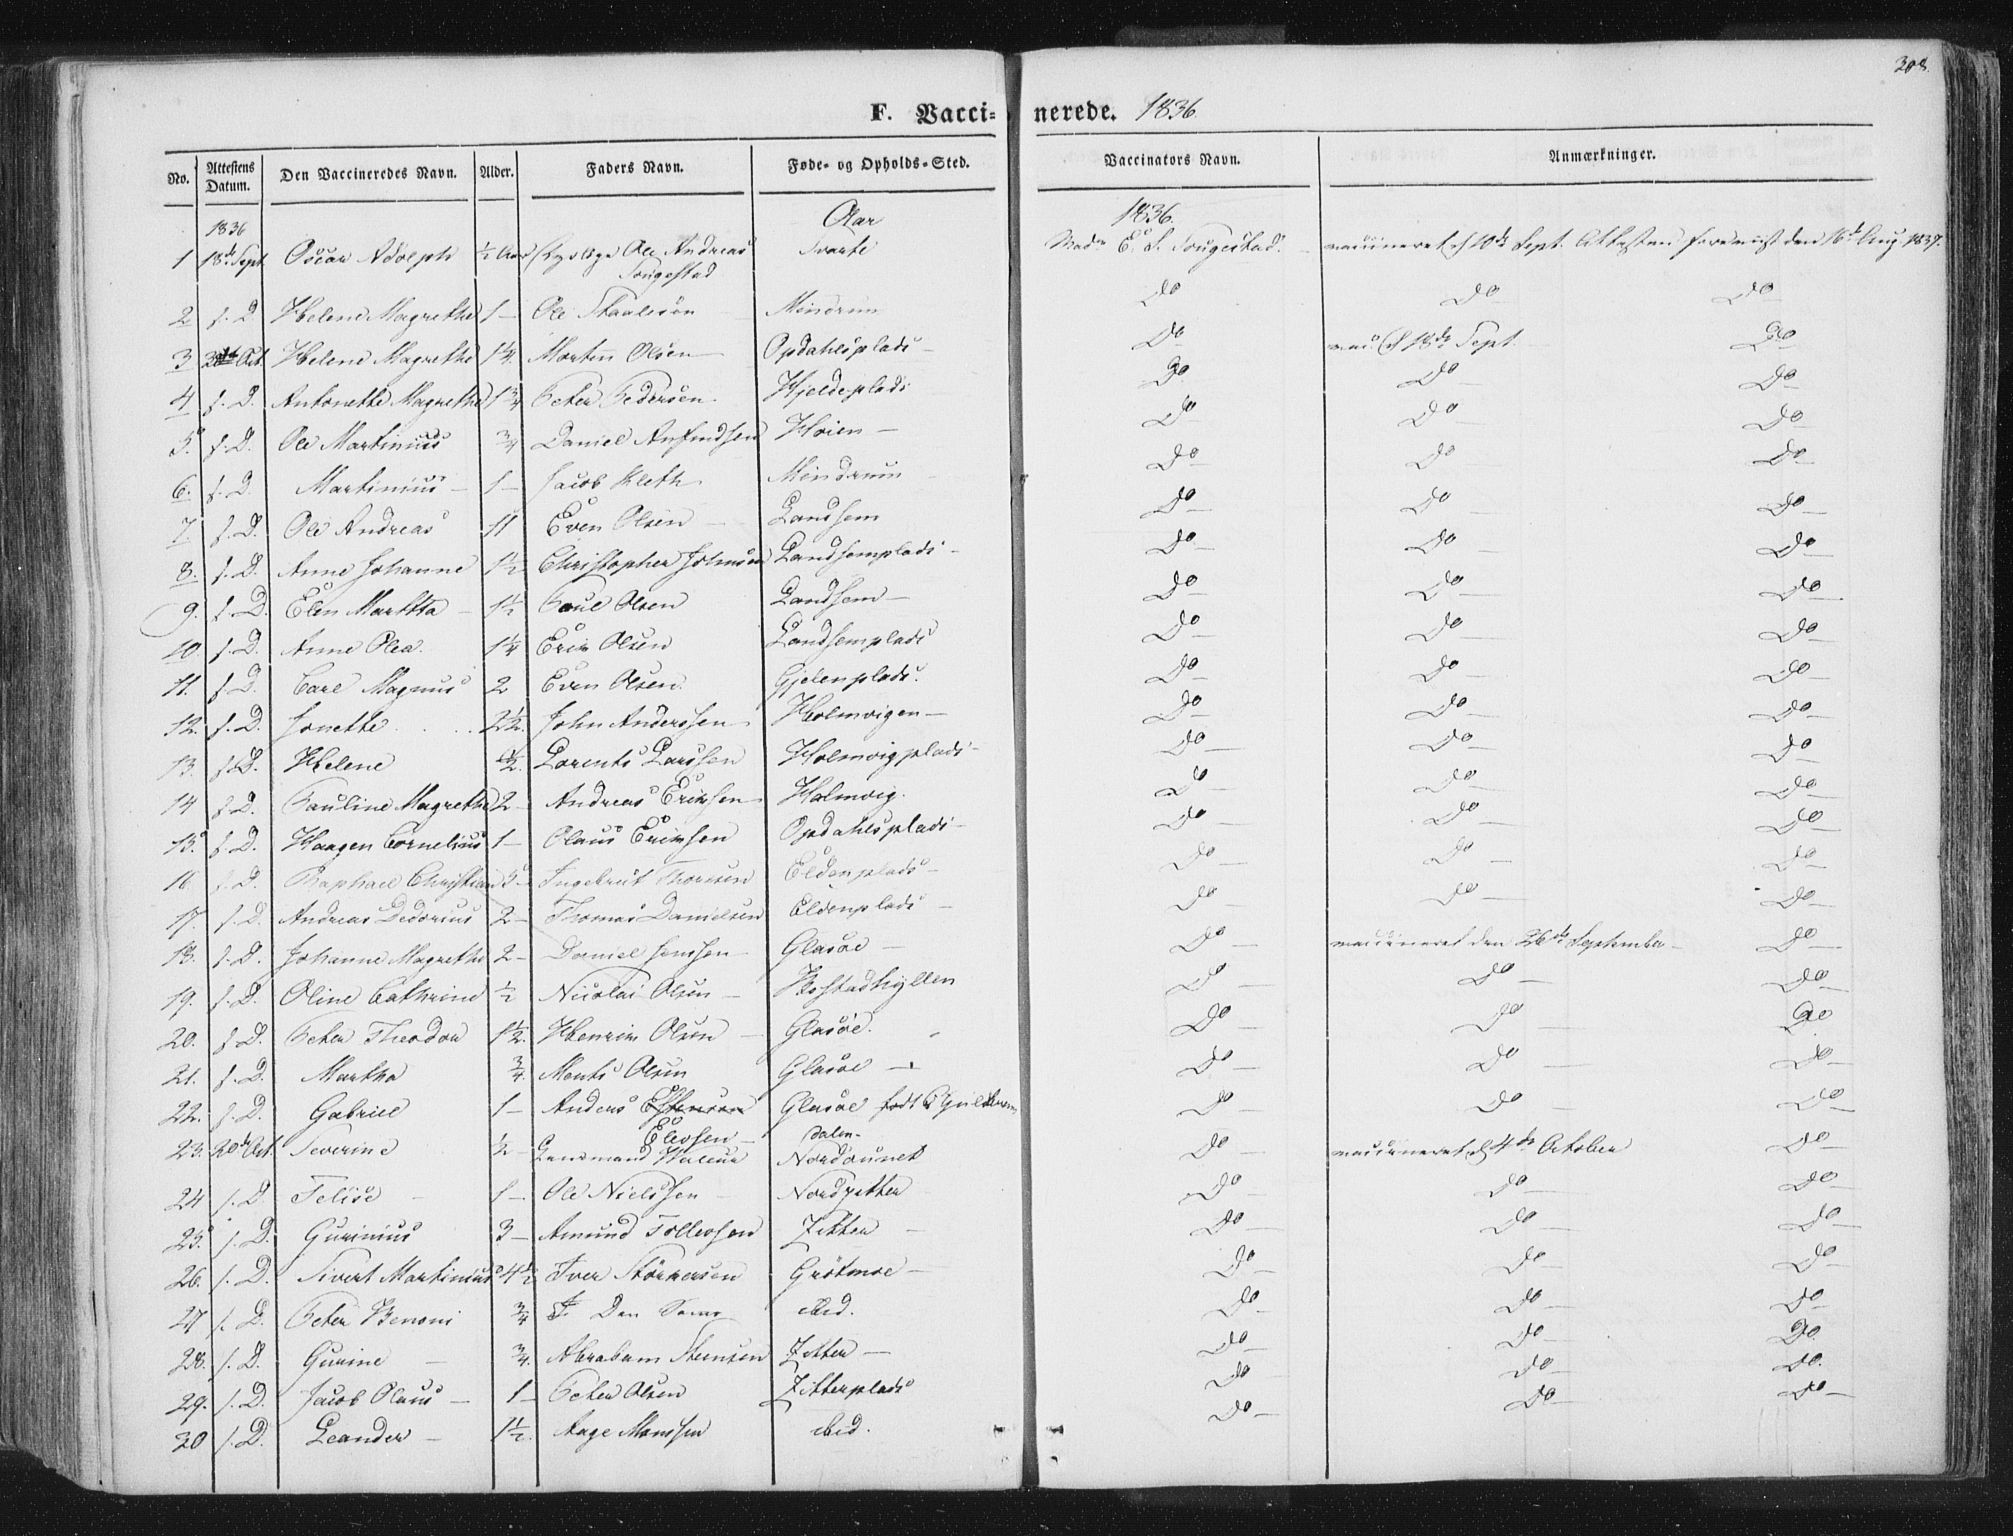 308.
F. Vaccinerede. 1836.
No. Attestens Datum. Den Vaccineredes Navn. Alder. Faders Navn. Føde- og Opholds-Sted. Vaccinators Navn. Anmærkninger.
1836 Aar 1836.
1 18de Sept Oscar Adolph ½ Aar Ole Andreas Svarte Mad. E. S. Sougestad. vaccineret d 10de Sept. Attesten fremviist den 16de Aug. 1837.
Sougestad
2 s. D. Helene Magrethe 1 – Ole Staalesøn Mindrum Do Do – Do –
3 Oct Helene Magrethe 1¼. Morten Olsen – Opdahlsplads – Do – vac d 18de Sept. Do –
4 s. D. Antonette Magrethe 1¾ Peter Pedersen Hjeldeplads Do Do – Do –
5. s. D. Ole Martinius ¾ Daniel Anfindsen Høien – Do – Do – Do –
6. s. D. Martinius – 1 – Jacob Kleth Mindrum Do – Do – Do –
7 s. D. Ole Andreas 11 Even Olsen – Landsem Do – Do – Do –
8. s. D. Anne Johanne 1½ Christopher Johnsen Landsemplads – Do – Do – Do –
9. s. D. Elen Martha – 1½ Poul Olsen Landsem – Do – Do – Do –
10 s. D. Anne Olea. 1¼ Erik Olsen Landsemplads Do – Do – Do –
11. s. D. Carl Magnus 2 Even Olsen. Gjelenplads. Do – Do – Do –
12. s. D. Jonette 2½. John Anderssen – Holmvigen – Do – Do – Do –
13. s. D. Helene ½. Lorents Larssen Holmvigplads – Do – Do – Do –
14 s. D. Pauline Magrethe 2 – Andreas Eriksen – Holmvig. Do – Do – Do –
15. s. D. Haagen Cornelius 1 – Olaus Eriksen Opdahlsplads – Do – Do – Do –
16 s. D. Raphael Christian 5 – Ingebrit Thorsen Eldenplads – Do – Do – Do –
17. s. D. Andreas Dedorius 2 – Thomas Danielsen Eldenplads – Do – Do – Do –
18. s. D. Johanne Magrethe 2 – Daniel Jenssen – Glasøe – Do – vaccineret den 26de September – Do –
19. s. D. Oline Cathrine ½ Nicolai Olsen – Bostadhyllen Do – Do – Do –
20. s. D. Peter Theodor 1½. Henrik Olsen – Glasøe. Do – Do – Do
21. s. D. Martha ¾. Ments Olsen Glasøe – Do – Do – Do –
22. s. D. Gabriel 1 – Anders Estensen Glasøe født i Do – Do – Do –
Elevsen – dalen.
23. 20de Oct. Severine ½ – Lensmand Nordounet Do – vaccineret d 4de October Do –
24 s. D Felise – 1 – Ole Nielssen – Nordzitter Do – Do – Do –
25. s. D. Gurinius 3 – Amund Tollevsen Zitter – Do – Do – Do –
26. s. D. Sivert Martinius 4½ Iver Størkersen Grøtmoe – Do – Do – Do –
27 s. D. Peter Benoni ¾ Den Samme ibid. Do – Do – Do –
28. s. D. Gurine – ¾. Abraham Steensen Zitter – Do – Do – Do.
29. s. D. Jacob Olaus – 1 – Peter Olsen Zitterplads Do – Do – Do.
30 s. D. Leander – 1½. Aage Monssen ibid. Do – Do – Do –